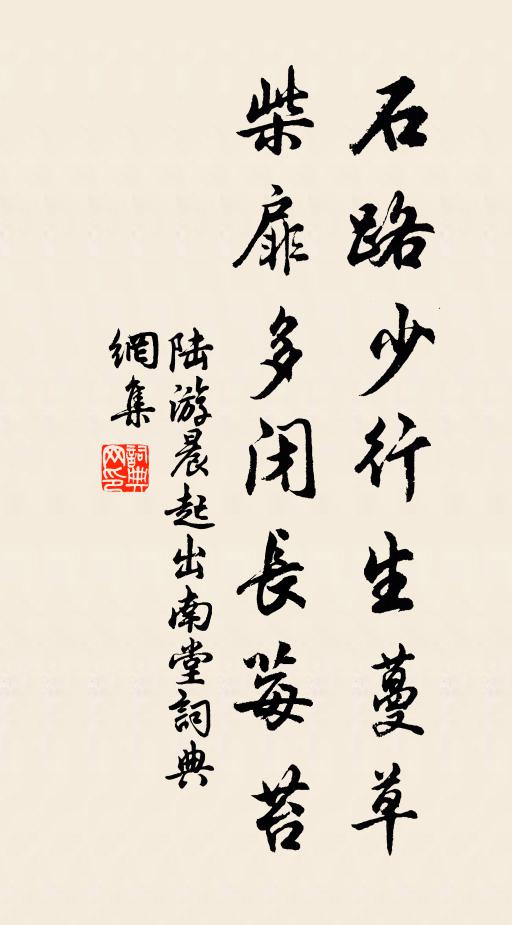 石路少行生蔓草
柴扉多闭長莓苔
陆游晨起出南堂詞典
網集
詞典
网印